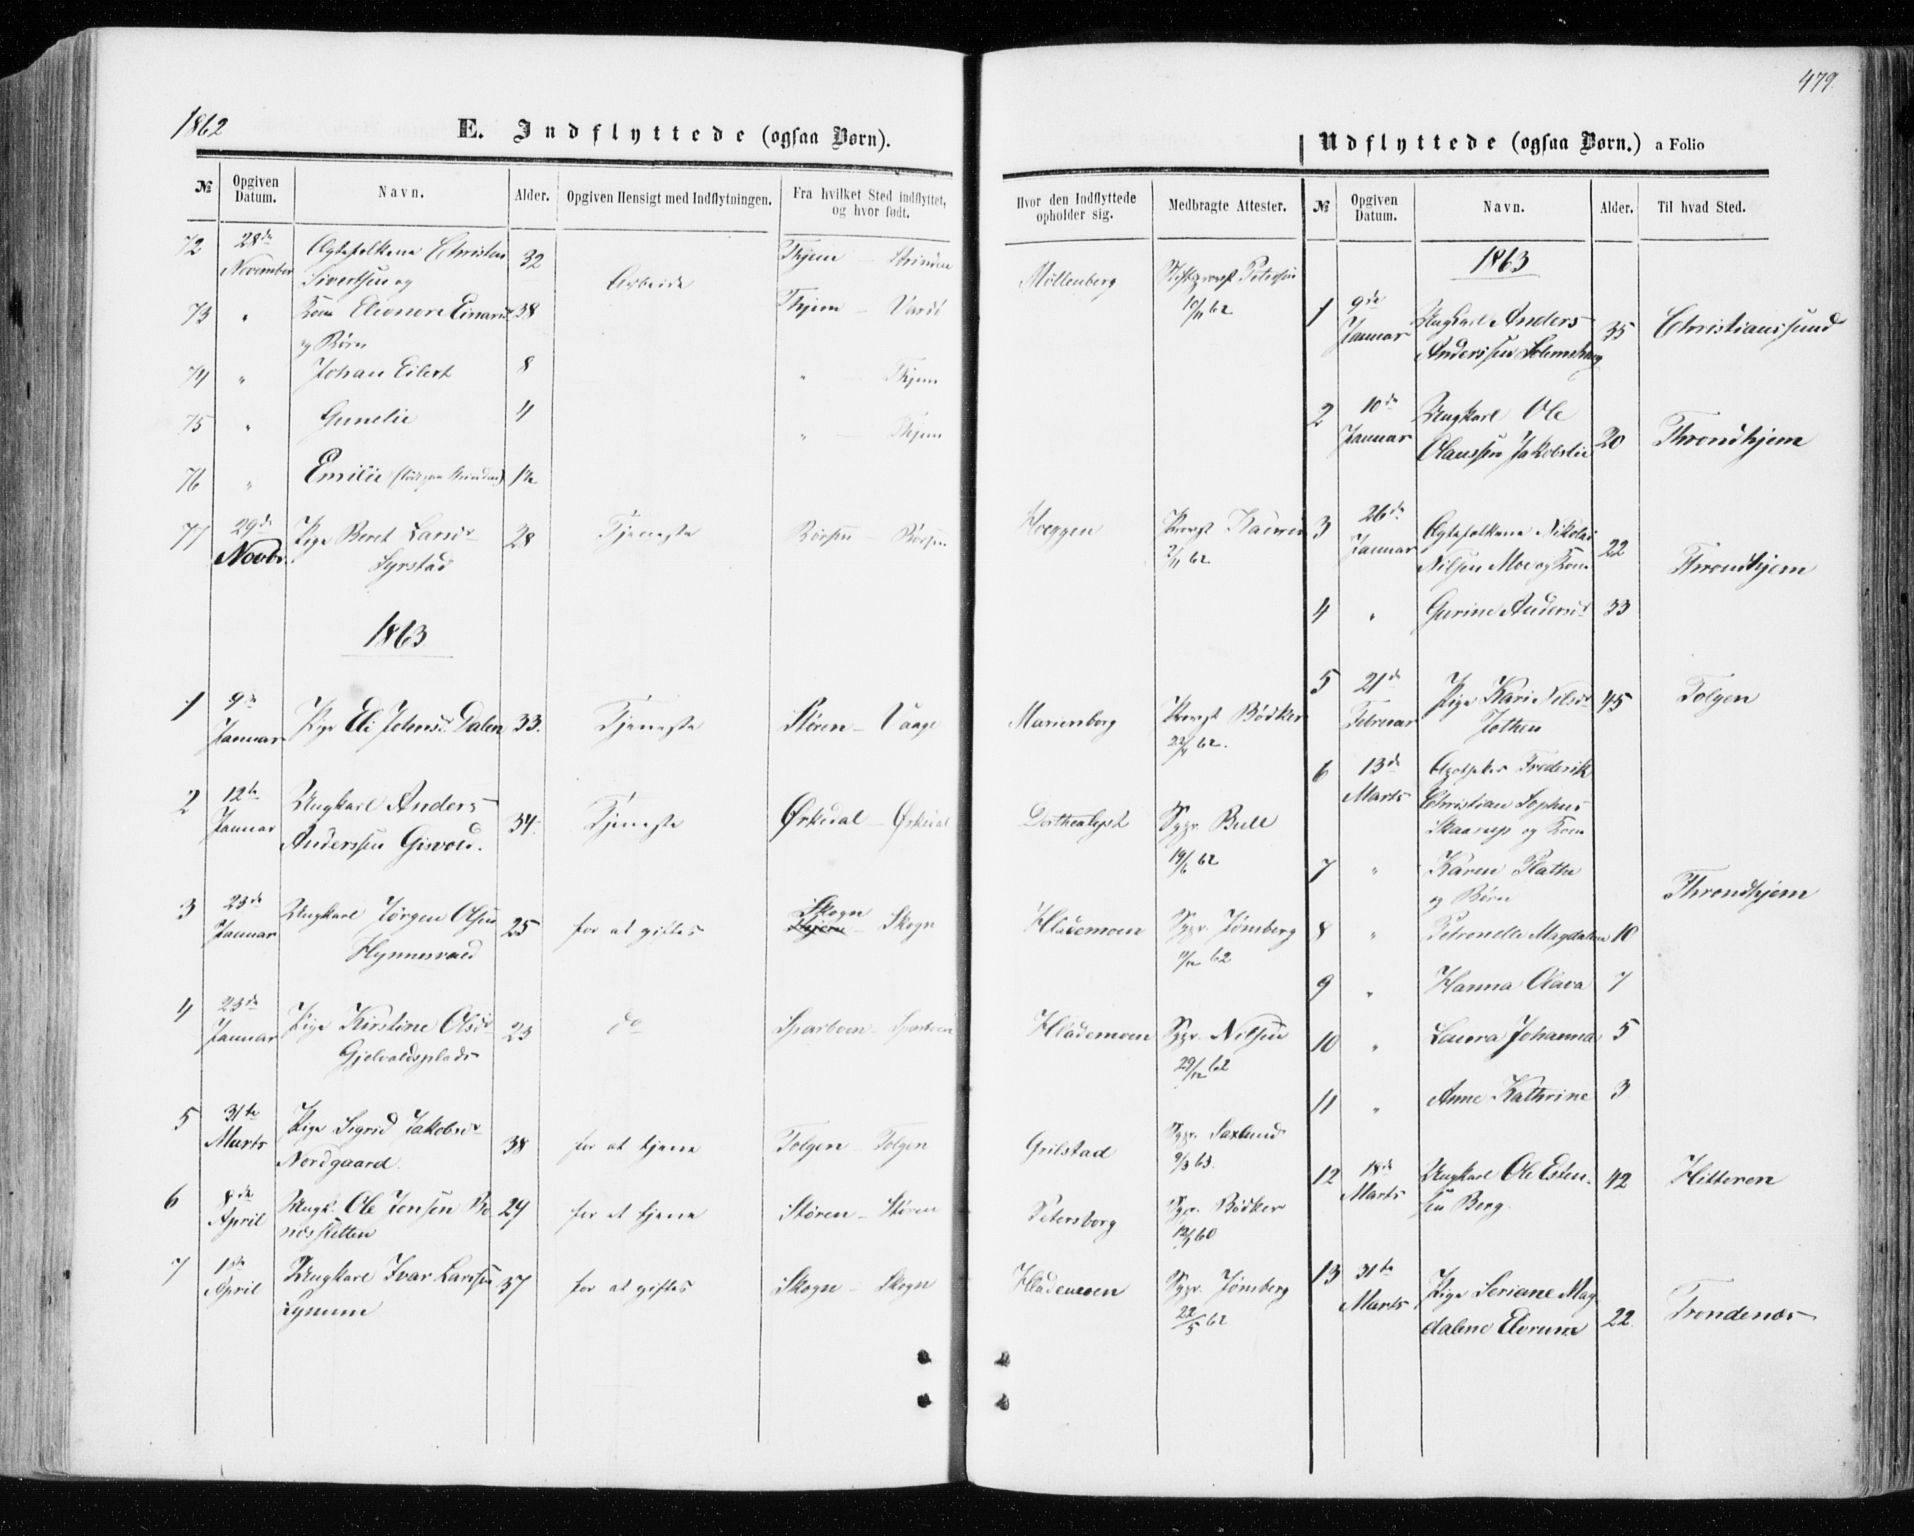 479.
1862
E. Indflyttede (ogsaa Børn).
№ Opgiven Datum. Navn. Alder. Opgiven Hensigt med Indflytningen. Fra hvilket Sted indflyttet, og hvor født. Hvor den Indflyttede opholder sig. Medbragte Attester.
72 28de November Ægtefolkene Christen Sivertsen og 32 Arbeide Thjem – Strinden Møllenberg Stiftsprovst Petersen
73 " Kone Eleonore Einarsd 38 Thjem – Vardö
og Børn
74 " Johan Eilert 8 " – Thjem
75 " Gunelie 4 " – Thjem
76 " Emilie
77 29de Novbr. Pige Beret Larsdr Syrstad 28 Tjeneste Børsen – Børsen Hoeggen Provst Kaurin 2/11 62
1863
1 9de Januar Pige Eli Johnsd. Dalen 33. Tjeneste Støren – Vaage Marienborg Provst Bødker 62.
2 12te Januar Ungkarl Anders Anderssen Gisvold. 34. Tjeneste Ørkedal – Ørkedal Dorthealyst Sgpr. Bull 19/6 62
3 23de Januar Ungkarl Jørgen Olsen 25 for at giftes Skogn – Skogn Hlademoen Sgpr. Jømberg 62
4 23de Januar Pige Kirstine Olsdr Gjelvoldsplads 23 do Sparboen – Sparboen Hlademoen Sgpr. Nilsen 29/12 62
5 31te Marts Pige Sigrid Jakobsdr Nordgaard. 38 for at tjene Tolgen – Tolgen Grilstad Sgpr. Saxlund 9/3 63.
6 8de April Ungk. Ole Jensen 29 for at tjene Støren – Støren Petersborg Sgpr. Bødker 60
7 April Ungkarl Ivar Larssen Lynum 37 for at giftes Skogn – Skogn Hlademoen Sgpr. Jømberg 22/5 62
Udflyttede (ogsaa Børn.) a Folio
№ Opgiven Datum. Navn. Alder. Til hvad Sted.
1863
1 9de Januar Ungkarl Anders Anderssen 35 Christianssund
2 10de Januar Ungkarl Ole Olaussen Jakobslie 20 Throndhjem
3 26de Januar Ægtefolkene Nikolai Nilsen Moe og Kone 22 Throndhjem
4 " Gurine Andersdr 33
5 21de Februar Pige Kari Nilsdr 45 Tolgen
6 13de Marts Apotheker Frederik Christian Sophus Skaarup og Kone
7 " Karen Plathe
og Børn Throndhjem
8 " Petronelle Magdalene 10
9 " Hanna Olava 7
10 " Laura Johanna 5
11 " Anne Kathrine 3
12 18de Marts Ungkarl Ole Estensen Berg. 42 Hitteren
13 31te Marts Pige Seriane Magdalene Elvrum 22. Trondenæs